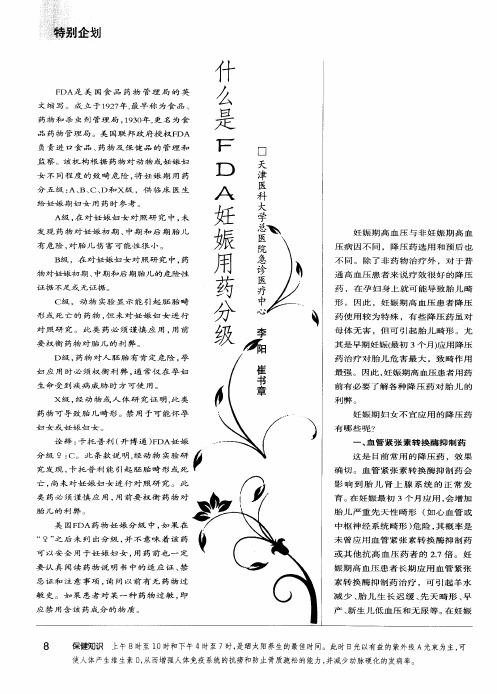 特别企划
什么是FDA妊娠用药分级
□天津医科大学总医院急诊医疗中心 李 阳 崔书章
FDA是美国食品药物管理局的英
文缩写。成立于1927年,最早称为食品、
药物和杀虫剂管理局,1930年,更名为食
品药物管理局。美国联邦政府授权FDA
负责进口食品、药物及保健品的管理和
监察。该机构根据药物对动物或妊娠妇
女不同程度的致畸危险,将妊娠期用药
分五级:A、B、C、D和X级，供临床医生
给妊娠期妇女用药时参考。
A级,在对妊娠妇女对照研究中,未
发现药物对妊娠初期、中期和后期胎儿
有危险,对胎儿伤害可能性很小。
B级，在对妊娠妇女对照研究中,药
物对妊娠初期、中期和后期胎儿的危险性
证据不足或无证据。
C级，动物实验显示能引起胚胎畸
形或死亡的药物,但未对妊娠妇女进行
对照研究。此类药必须谨慎应用,用前
要权衡药物对胎儿的利弊。
D级,药物对人胚胎有肯定危险,孕
妇应用时必须权衡利弊,通常仅在孕妇
生命受到疾病威胁时方可使用。
X级,经动物或人体研究证明,此类
药物可导致胎儿畸形。禁用于可能怀孕
妇女或妊娠妇女。
诠释:卡托普利(开博通)FDA妊娠
分级♀:C。此条款说明,经动物实验研
究发现,卡托普利能引起胚胎畸形或死
亡,尚未对妊娠妇女进行对照研究。此
类药必须谨慎应用,用前要权衡药物对
胎儿的利弊。
美国FDA药物妊娠分级中,如果在
“♀”之后未列出分级,并不意味着该药
可以安全用于妊娠妇女,用药前也一定
要认真阅读药物说明书中的适应证、禁
忌证和注意事项,询问以前有无药物过
敏史。如果患者对某一种药物过敏,即
应禁用含该药成分的物质。
妊娠期高血压与非妊娠期高血
压病因不同，降压药选用和预后也
不同。除了非药物治疗外，对于普
通高血压患者来说疗效很好的降压
药，在孕妇身上就可能导致胎儿畸
形。因此，妊娠期高血压患者降压
药使用较为特殊，有些降压药虽对
母体无害，但可引起胎儿畸形。尤
其是早期妊娠(最初3个月)应用降压
药治疗对胎儿危害最大，致畸作用
最强。因此,妊娠期高血压患者用药
前有必要了解各种降压药对胎儿的
利弊。
妊娠期妇女不宜应用的降压药
有哪些呢?
一、血管紧张素转换酶抑制药
这是目前常用的降压药，效果
确切。血管紧张素转换酶抑制药会
影响到胎儿肾上腺系统的正常发
育。在妊娠最初3个月应用,会增加
胎儿严重先天性畸形（如心血管或
中枢神经系统畸形)危险,其概率是
未曾应用血管紧张素转换酶抑制药
或其他抗高血压药者的2.7倍。妊
娠期高血压患者长期应用血管紧张
素转换酶抑制药治疗，可引起羊水
减少、胎儿生长迟缓、先天畸形、早
产、新生儿低血压和无尿等。在妊娠
8 保健知识 上午8时至10时和下午4时至7时,是晒太阳养生的最佳时间。此时日光以有益的紫外线A光束为主,可
使人体产生维生素D,从而增强人体免疫系统的抗痨和防止骨质疏松的能力,并减少动脉硬化的发病率。